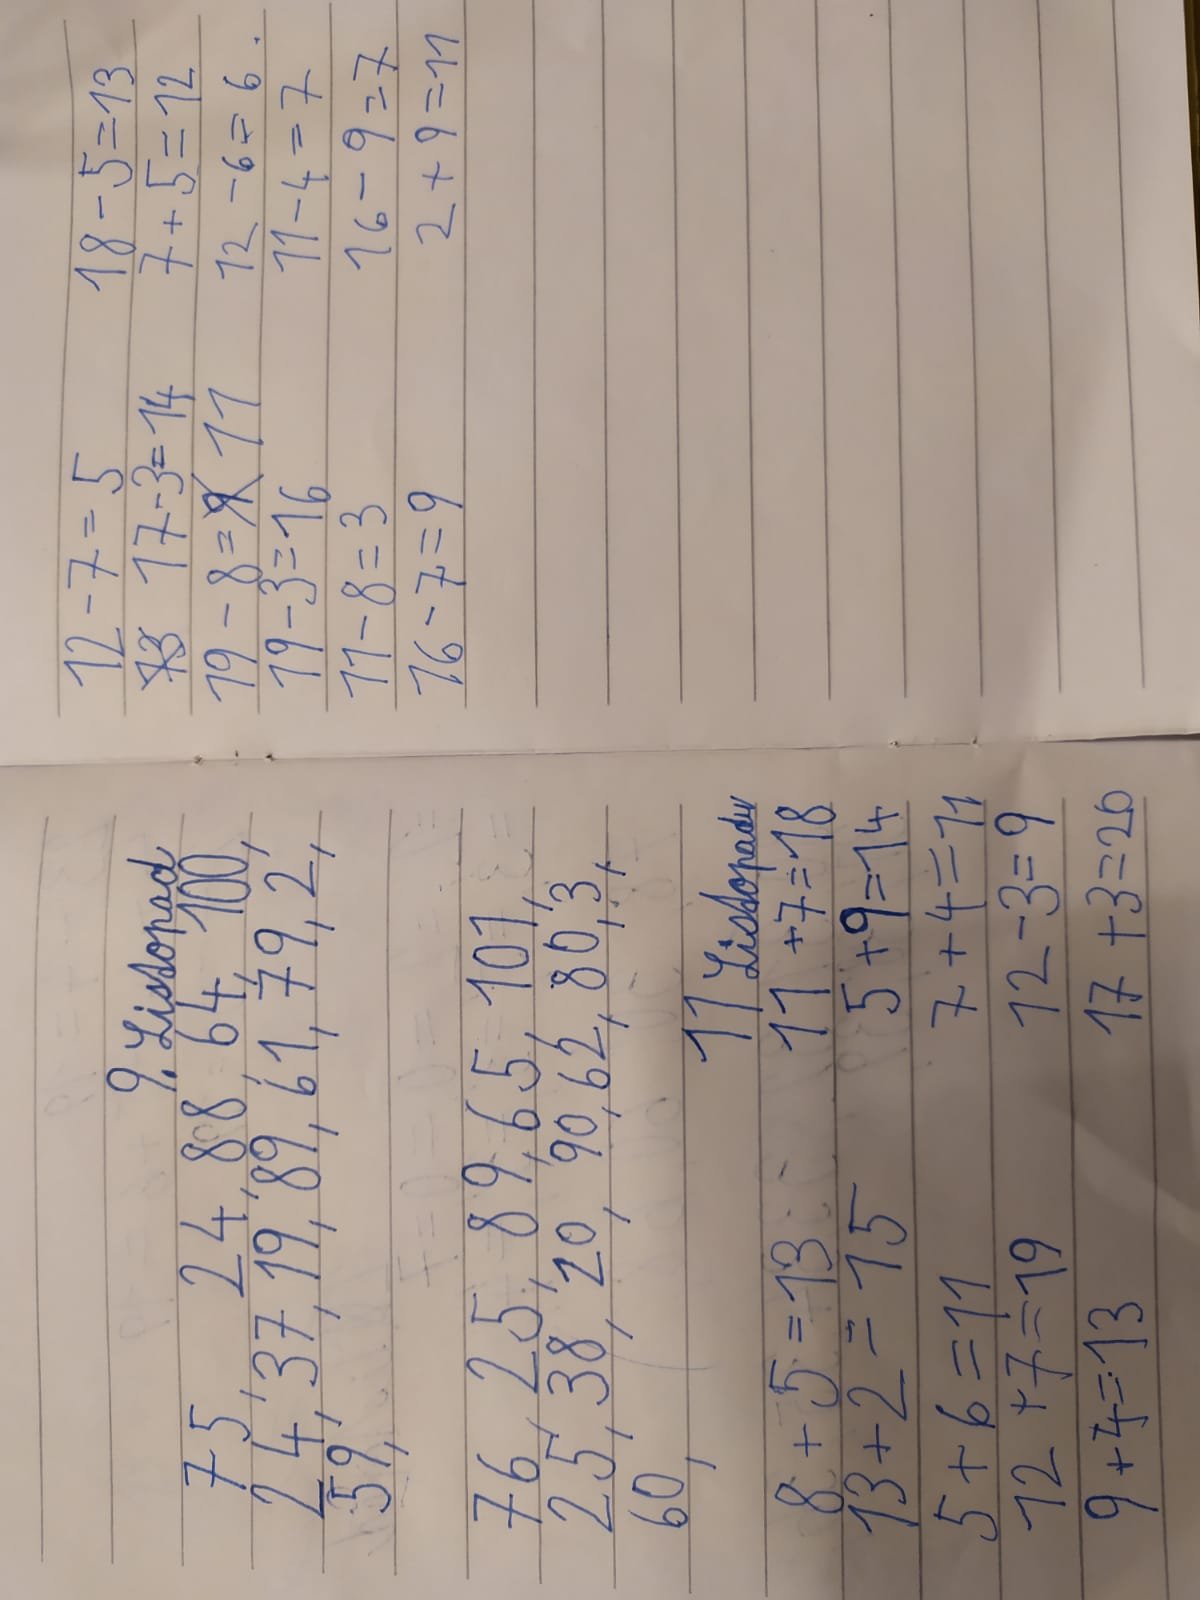 9. Listopad
75 24, 88 64, 100,
24, 37, 19, 89, 61, 79, 2,
59,
76, 25, 89, 65, 101,
25, 38, 20, 90, 62, 80, 3,
60,
11 Listopadu
8+5=13 11+7=18
13+2=15 5+9=14
5+6=11 7+4=11
12+7=19 12-3=9
9+4=13 17+3=20
12-7=5 18-5=13
17-3=14 7+5=12
19-8= 11 12-6=6.
19-3=16 11-4=7
11-8=3 16-9=7
16-7=9 2+9=11